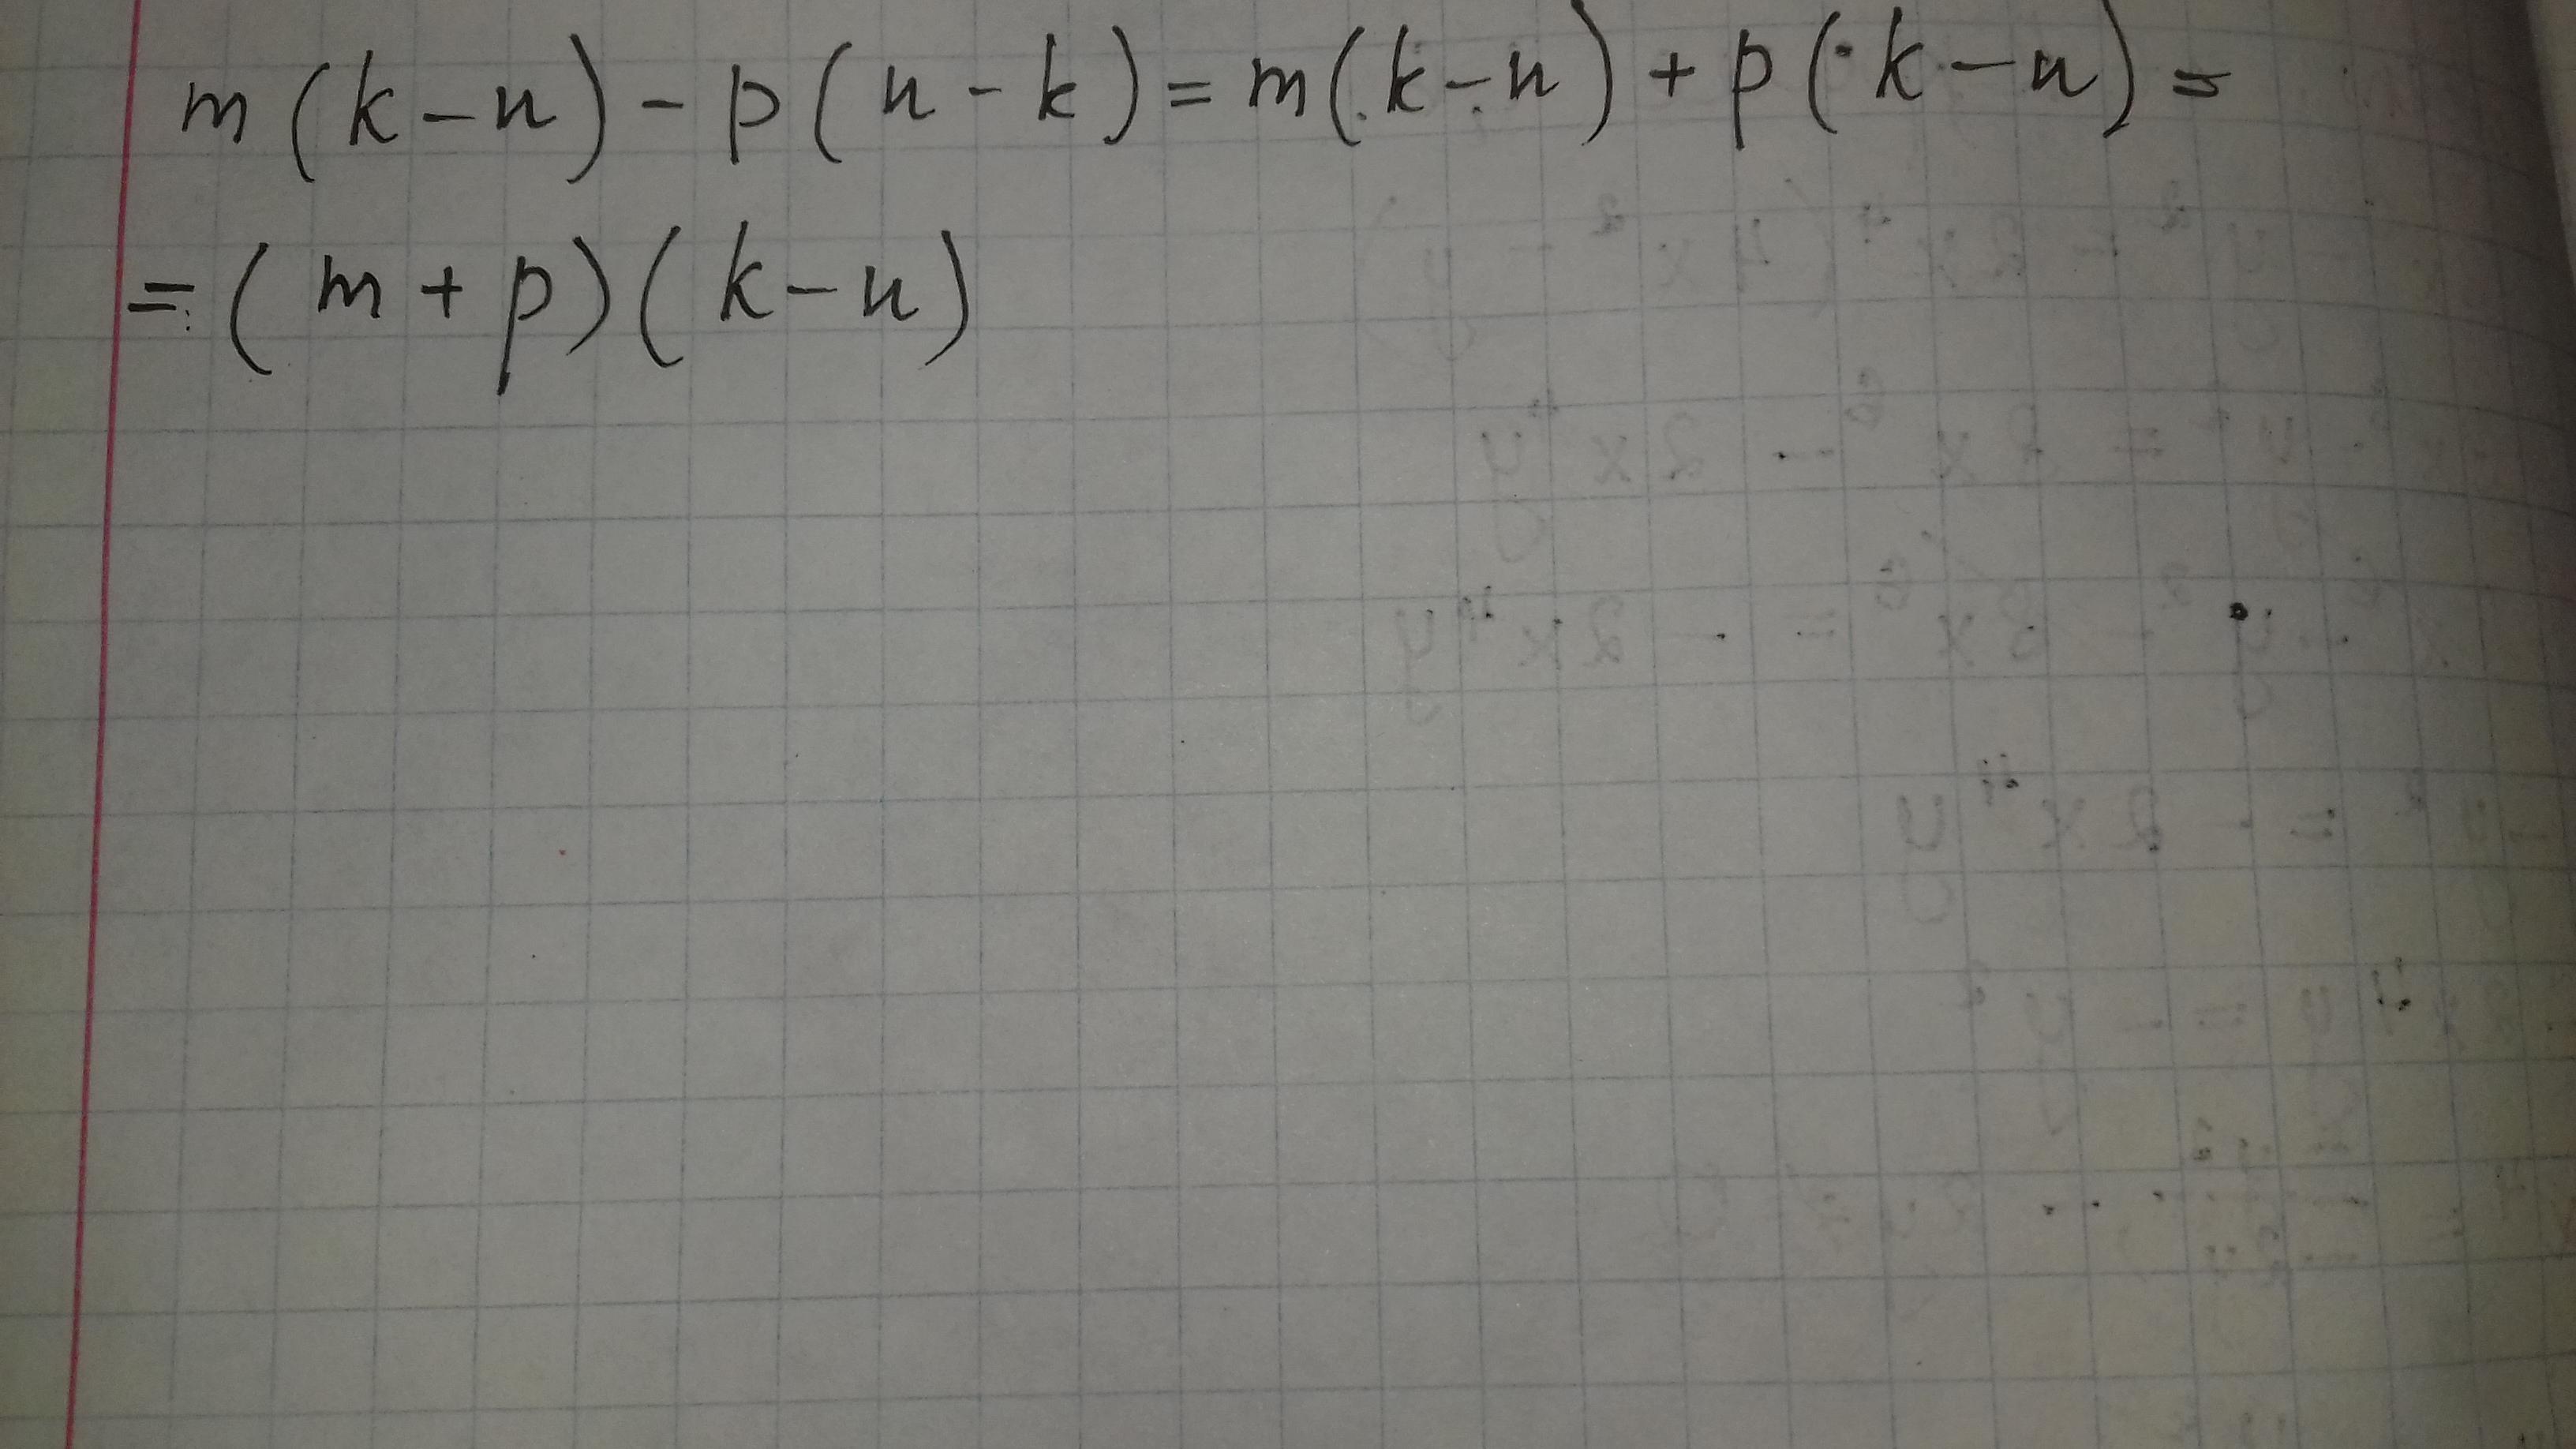 m(k-n)-p(n-k)=m(k-n)+p(k-n)=
=(m+p)(k-n)